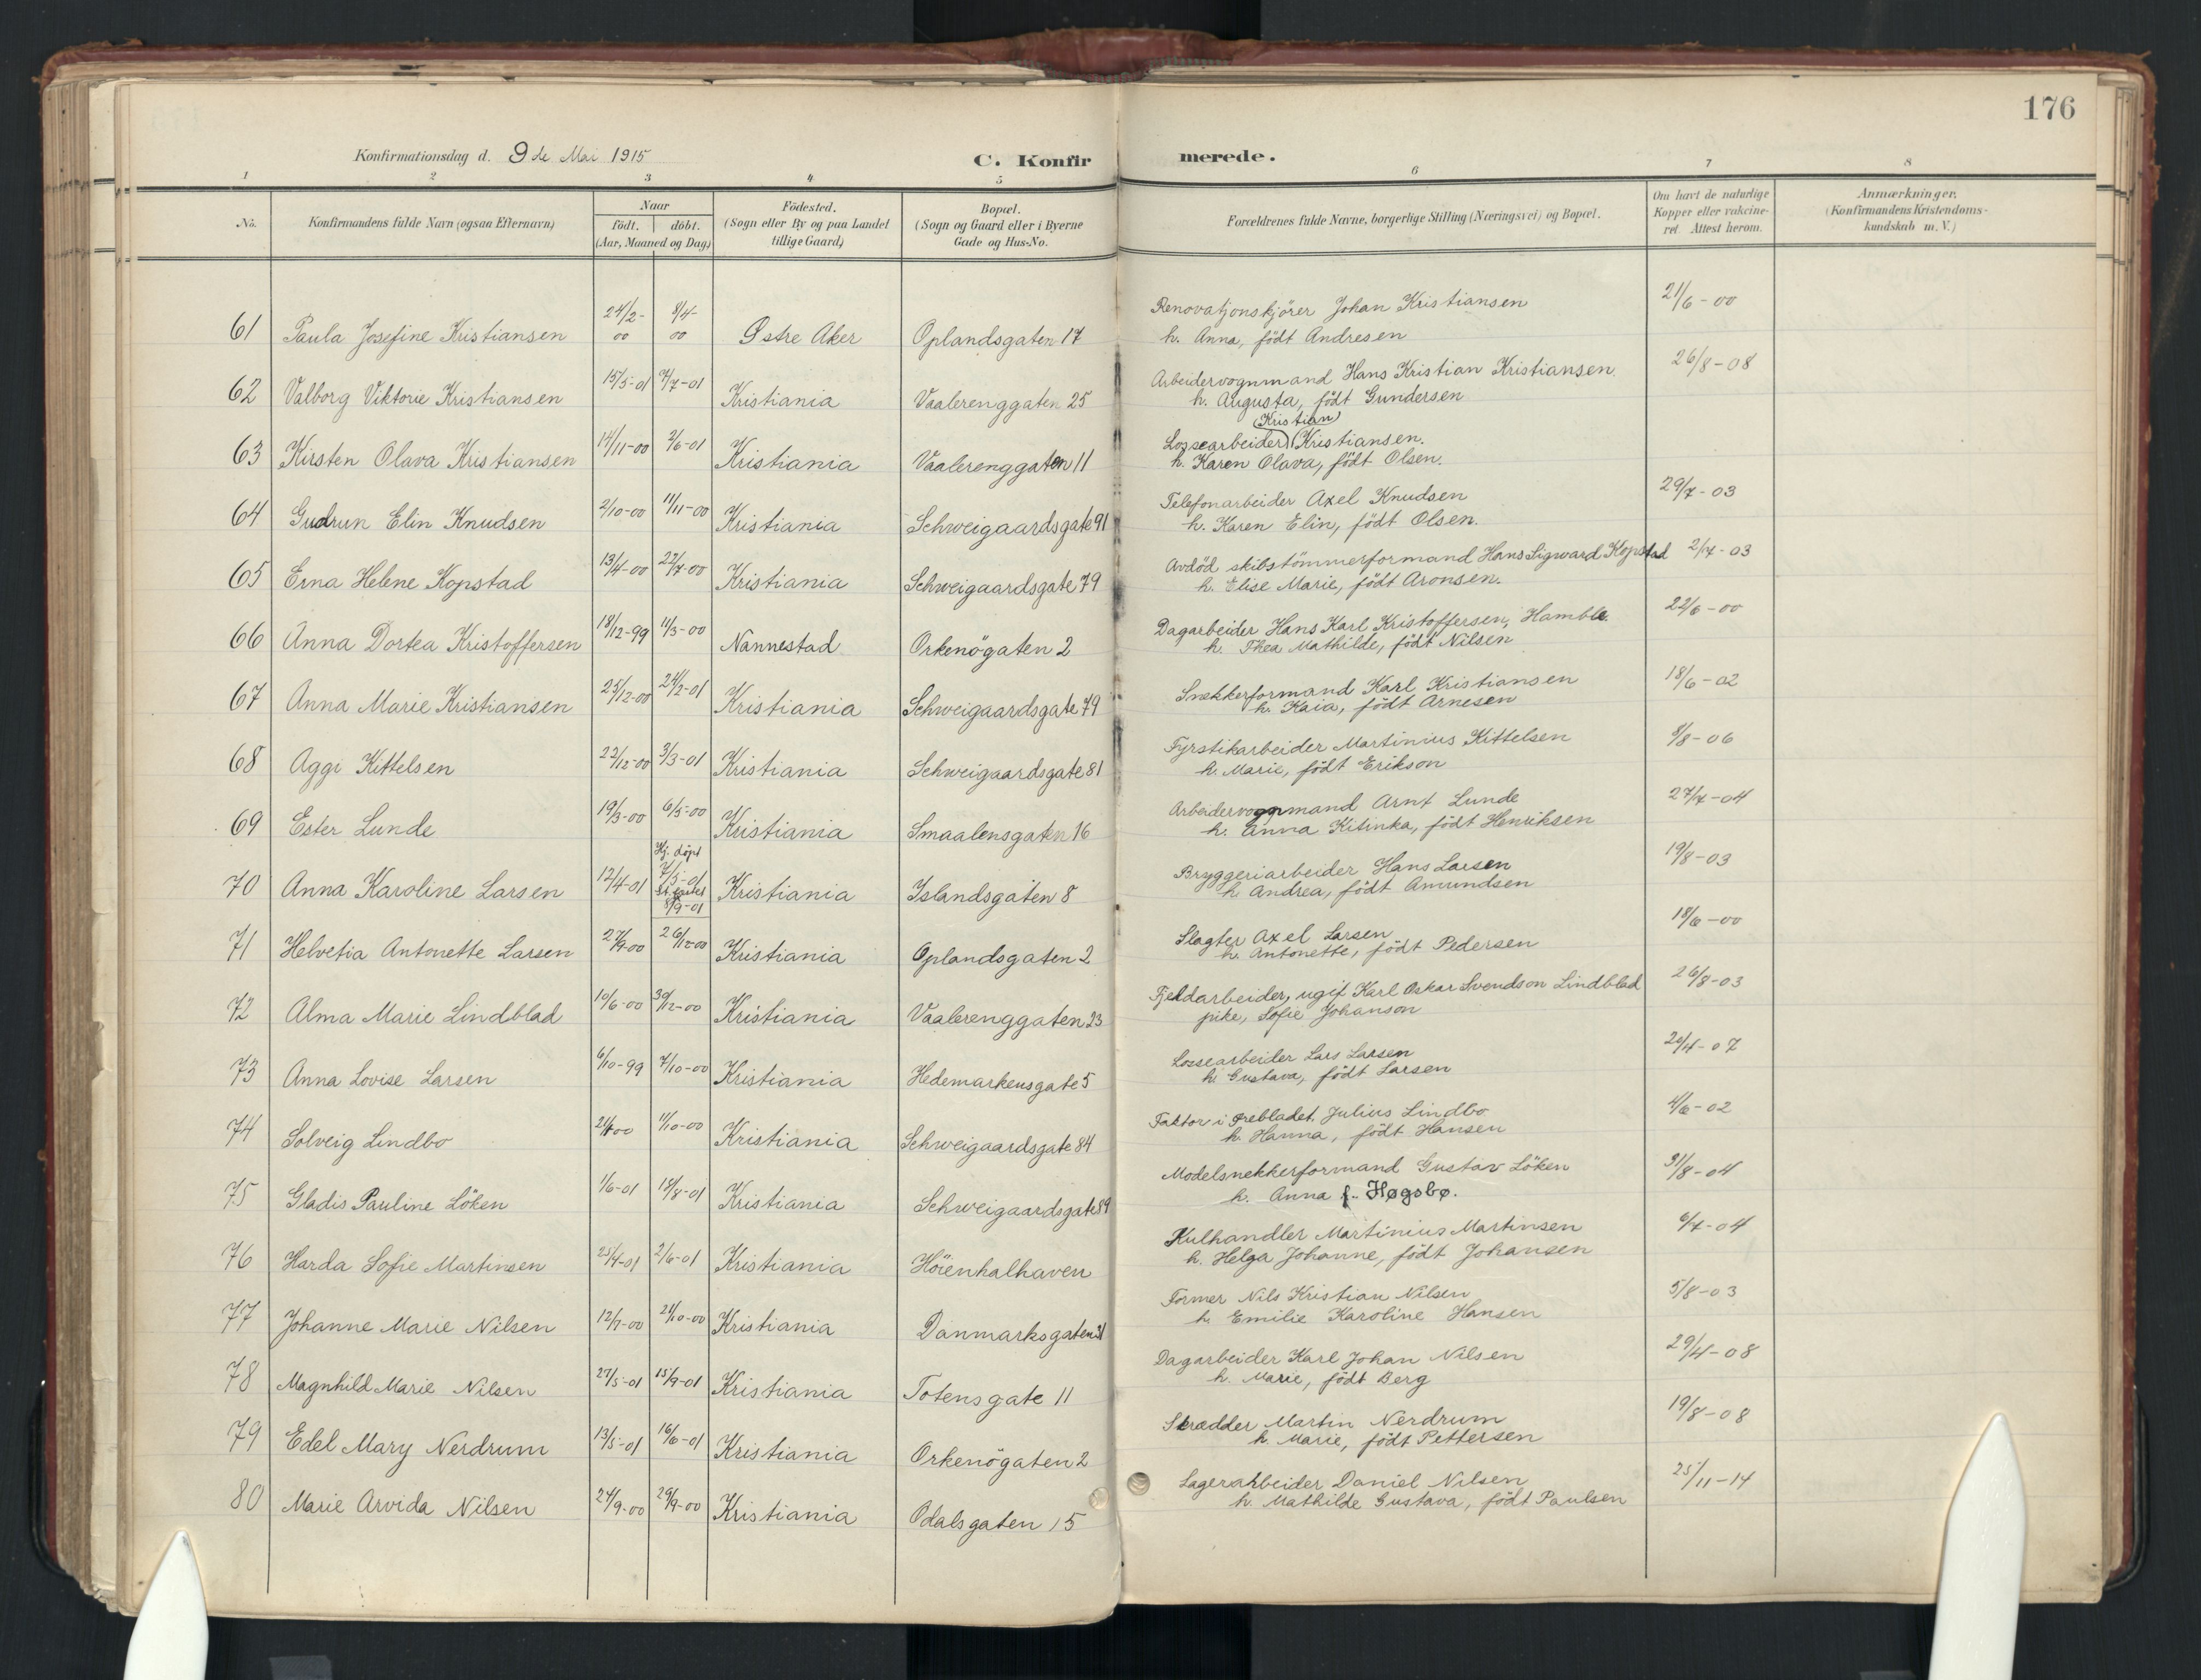 176
Konfirmationsdag d. 9de Mai 1915
C. Konfirmerede.
1 2 3 4 5 6 7 8
No. Konfirmandens fulde Navn (ogsaa Efternavn) Naar födt. döbt. (Aar, Maaned og Dag) Födested. (Sogn eller By og paa Landet tillige Gaard) Bopæl. (Sogn og Gaard eller i Byerne Gade og Hus-No. Forældrenes fulde Navne, borgerlige Stilling (Næringsvei) og Bopæl. Om havt de naturlige Kopper eller vakcineret. Attest herom. Anmærkninger. (Konfirmandens Kristendomskundskab m. V.)
61 Paula Josefine Kristiansen 24/2-00 8/4-00 Østre Aker Oplandsgaten 17 Renovatjonskjörer Johan Kristiansen 21/6-00
h. Anna, födt Andresen
62 Valborg Viktorie Kristiansen 15/5-01 7/7-01 Kristiania Vaalerenggaten 25 Arbeidervognmand Hans Kristian Kristiansen. 26/8-08
h. Augusta, födt Gundersen
63 Kirsten Olava Kristiansen 14/11-00 2/6-01 Kristiania Vaalerenggaten 11 Lossearbeider Kristian Kristiansen.
h. Karen Olava, födt Olsen.
64 Gudrun Elin Knudsen 2/10-00 11/11-00 Kristiania Schweigaardsgate 91 Telefonarbeider Axel Knudsen 29/7-03
h. Karen Elin, födt Olsen.
65 Erna Helene Kopstad 13/4-00 22/7-00 Kristiania Schweigaardsgate 79 Avdöd skibstömmerformand Hans Sigward Kopstad 2/7-03
h. Elise Marie, födt Aronsen.
66 Anna Dortea Kristoffersen 18/12-99 11/3-00 Nannestad Orkenögaten 2 Dagarbeider Hans Karl Kristoffersen, Hamble. 22/6-00
h. Thea Mathilde, födt Nilsen
67 Anna Marie Kristiansen 25/12-00 24/2-01 Kristiania Schweigaardsgate 79 Snekkerformand Karl Kristiansen 18/6-02
h. Kaia, födt Arnesen
68 Aggi Kittelsen 22/12-00 3/3-01 Kristiania Schweigaardsgate 81 Fyrstikarbeider Martinius Kittelsen 8/8-06
h. Marie, födt Erikson
69 Ester Lunde 19/3-00 6/5-00 Kristiania Smaalensgaten 16 Arbeidervognmand Arnt Lunde 27/7-04
h. Anna Kitinka, födt Henriksen
70 Anna Karoline Larsen 12/4-01 Hj. döpt 7/5-01 8/9-01 Kristiania Islandsgaten 8 Bryggeriarbeider Hans Larsen 19/8-03
h. Andrea, födt Amundsen
71 Helvetia Antonette Larsen 27/9-00 26/12-00 Kristiania Oplandsgaten 2 Slagter Axel Larsen 18/6-00
h. Antonette, födt Pedersen
72 Alma Marie Lindblad 10/6-00 30/12-00 Kristiania Vaalerenggaten 23 Fjeldarbeider, ugif Karl Oskar Svendson Lindblad 26/8-03
pike, Sofie Johanson
73 Anna Lovise Larsen 6/10-99 7/10-00 Kristiania Hedemarkensgate 5 Lossearbeider Lars Larsen 20/4-07
h. Gustava, födt Larsen
74 Solveig Lindbo 11/10-00 Kristiania Schweigaardsgate 84 Faktor i Ørebladet. Julius Lindbo 4/6-02
h. Hanna, födt Hansen
75 Gladis Pauline Löken 1/6-01 18/8-01 Kristiania Schweigaardsgate 89 Modelsnekkerformand Gustav Löken 31/8-04
h. Anna f. Høgsbø.
76 Harda Sofie Martinsen 25/4-01 2/6-01 Kristiania Höienhalhaven Kulhandler Martinius Martinsen 6/7-04
h. Helga Johanne, födt Johansen
77 Johanne Marie Nilsen 12/7-00 21/10-00 Kristiania Danmarksgaten 31 Former Nils Kristian Nilsen 5/8-03
h. Emilie Karoline Hansen
78 Magnhild Marie Nilsen 27/5-01 15/9-01 Kristiania Totensgate 11 Dagarbeider Karl Johan Nilsen 29/4-08
h. Marie, födt Berg
79 Edel Mary Nerdrum 13/5-01 16/6-01 Kristiania Orkenögaten 2 Skrædder Martin Nerdrum 19/8-08
h. Marie, födt Pettersen
80 Marie Arvida Nilsen 24/9-00 29/9-00 Kristiania Odalsgaten 15 Lagerarbeider Daniel Nilsen 25/11-14
h. Mathilde Gustava, födt Paulsen